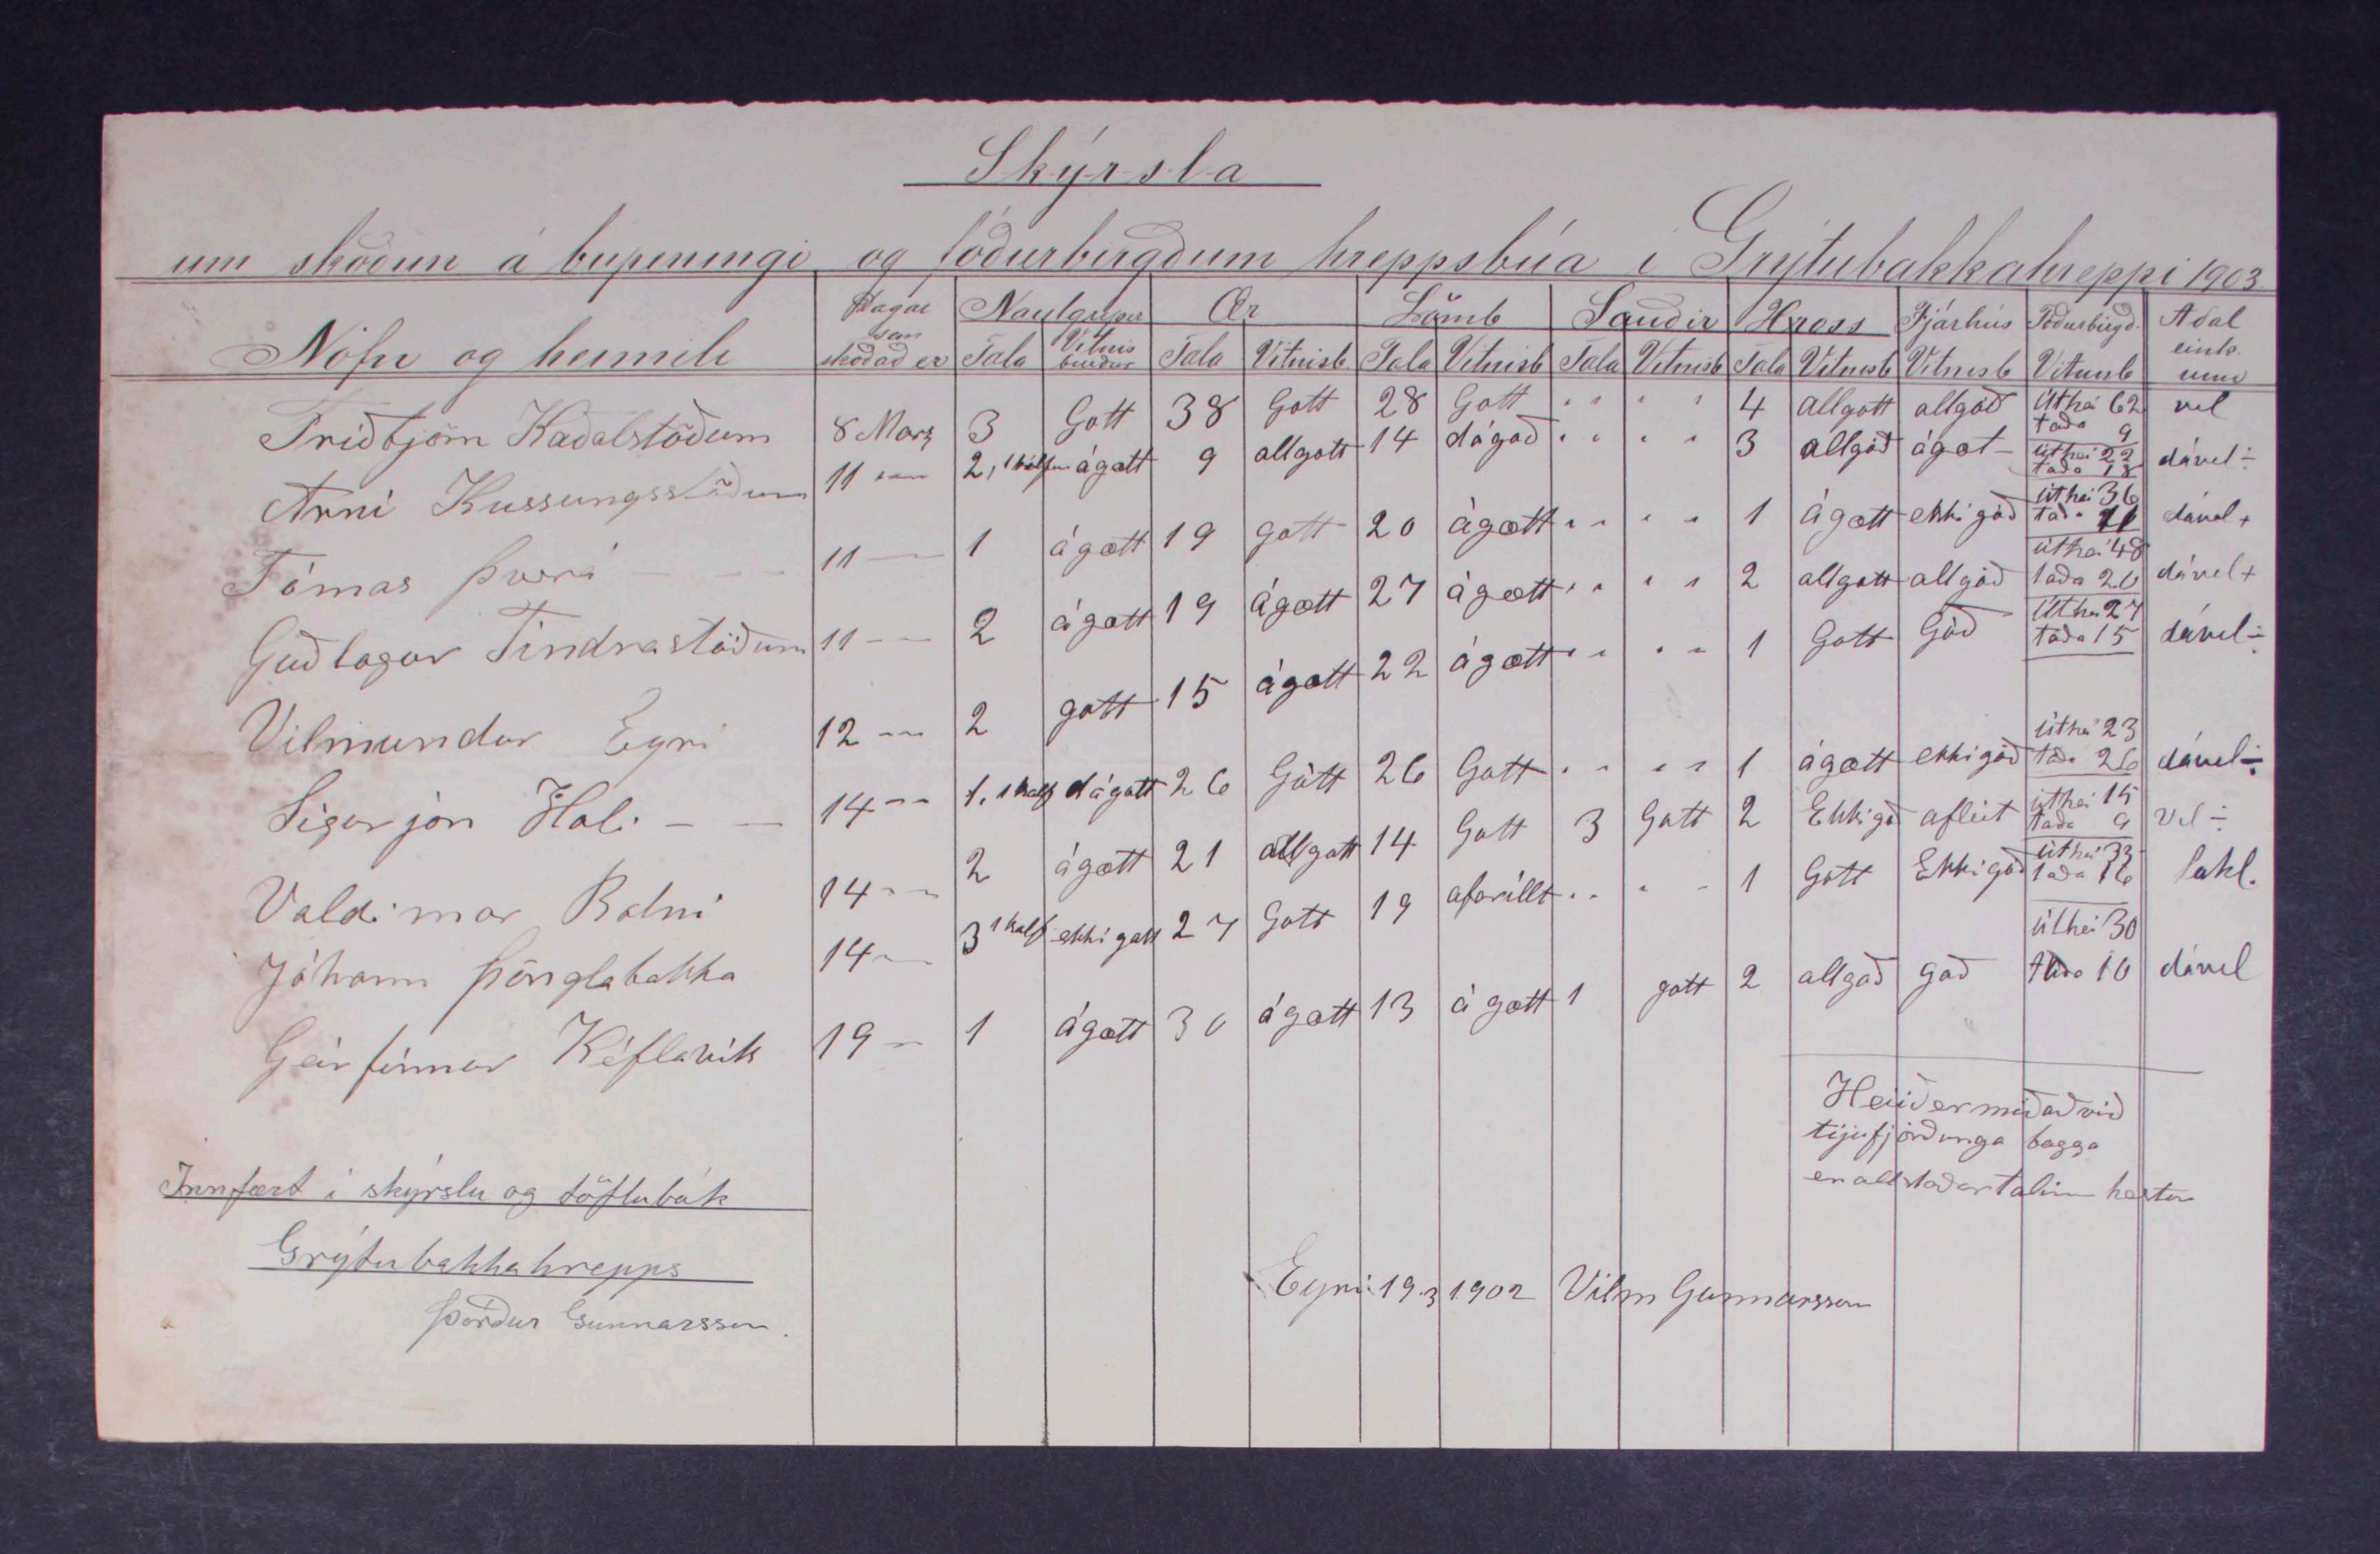 Skýrsla
um skoðun á búpeningi og fóðurbirgðum hreppsbúa í Grýtubakkahreppi 1903.
Nöfn og heimili Dagar sem skoðað er Nautgripir Tala Vitnis burður Ær Tala Vitnisb. Lömb Tala Vitnisb Sauðir Tala Vitnisb Hross Tala Vitnisb Fjárhús Vitnisb Fóðurbirgð. Vitnisb Aðal eink. unn
Friðbjörn Kaðalstöðum 8 Marz 3 Gott 38 Gott 28 Gott " " " " 4 allgott allgóð úthei 62 taða 9 vel
Arni Kussungsstöðum 11 — 2, 1 kálfur ágætt 9 allgott 14 dágoð " " " " 3 allgóð ágæt – úthei 22 taða 18 dável ÷
Tómas Þverá — — 11 — 1 ágætt 19 gott 20 ágætt " " " " 1 ágætt ekki góð úthei 36 taða 11 dável +
Guðlagur Tindrastöðum 11 — 2 ágætt 19 ágætt 27 ágætt " " " " 2 allgott allgóð úthei 48 taða 20 dável +
Vilmundur Eyri 12 — 2 gott 15 ágætt 22 ágætt " " " " 1 Gott Góð úthei 27 taða 15 dável ÷
Sigurjón Hóli — — 14 — 1. 1 kalf dágott 26 Gött 26 Gott " " " " 1 ágætt ekki góð úthei 23 taða 26 dável ÷
Valdimar Botni 14 — 2 ágætt 21 allgott 14 Gott 3 Gott 2 Ekki gó afleit úthei 15 taða 9 vel ÷
Jóhann Þönglabakka 14 — 3 1 kalf ekki gott 27 Gott 19 afarillt " " " " 1 Gott Ekki góð úthei 33 taða 16 lakl.
Geirfinnur Kéflavík 19 — 1 ágætt 30 ágætt 13 ágætt 1 gott 2 allgoð góð úthei 30 taða 10 dável
Heiið er miðað við
tíjufjórðunga bagga
en allstaðar talinn hestur
Innfært í skýrslu og töflubók
Grýtubakkahrepps
Þórður Gunnarsson.
Eyri 19.3 1902 Vilm Gunnarsson